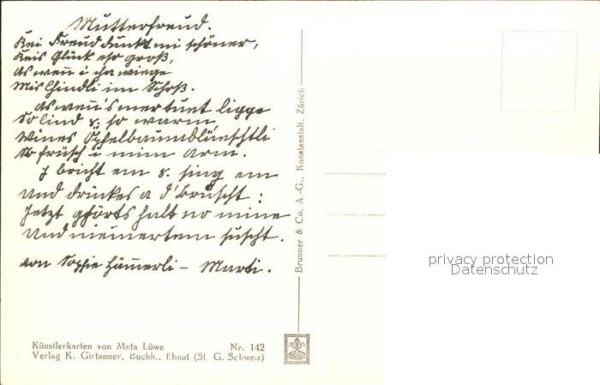 Mutterfreud.
Kei Freud dunkt mi schöner,
Keis Glück eso groß,
As wenn i cha wiege
Mis Chindli im Schoß.
As wenn's mer tuet ligge
So lind u. so warm
Wines Öpfelbaumblüeschtli
So früsch i mim Arm.
I bricht em u. sing em
Und drückes a d'Bruscht:
Jetzt ghörts halt no mine
Und niemertem suscht.
von Sophie Hämmerli - Marti.
Brunner & Co. A.-G., Kunstanstalt, Zürich
Künstlerkarten von Meta Löwe Nr. 142
Verlag K. Girtanner, Buchh., Ebnat (St. G. Schweiz)
privacy protection
Datenschutz